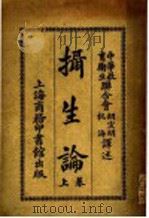 中華衛
生教育
聯合會
胡宣明
杭海
譯述
攝生論
卷上
上海商務印書館出版